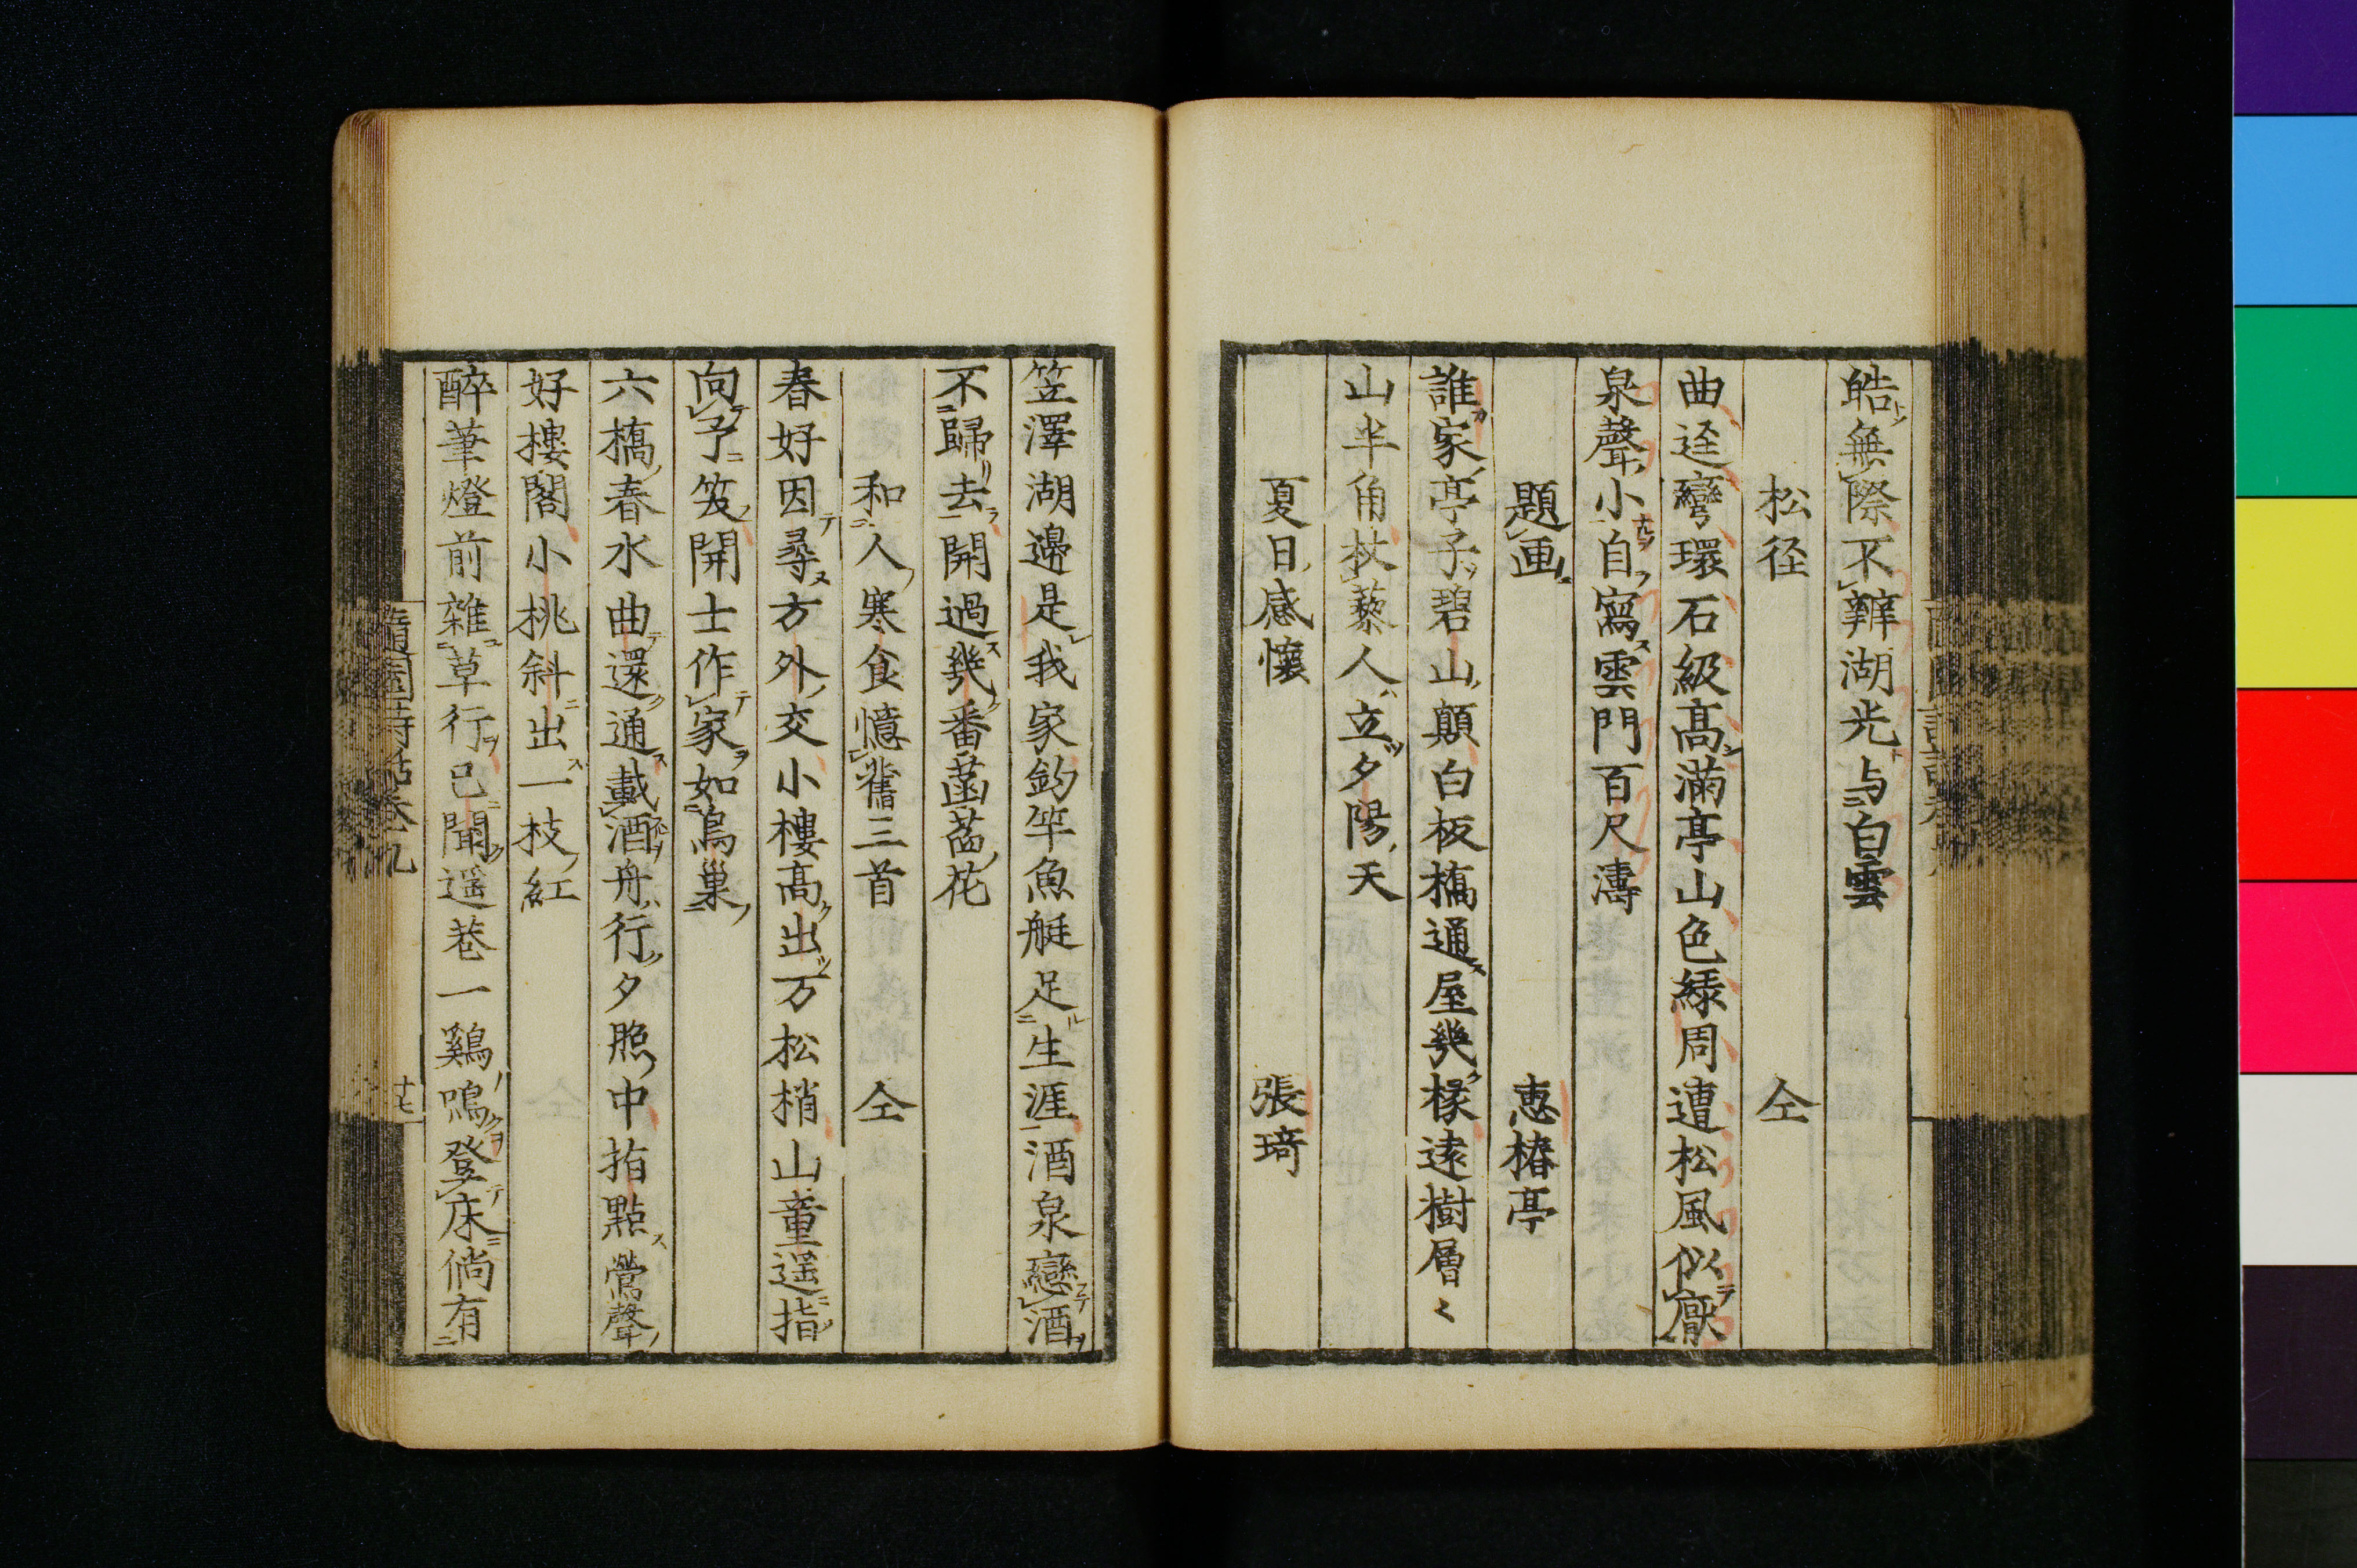 皓無際不辨湖光与白雲
松径　仝
曲逕彎環石級高滿亭山色綠周遭松風似厭
泉聲小自寫雲門百尺濤
題画　惠椿亭
誰家亭子碧山顛白板橋通屋幾椽遠樹層〻
山半角杖藜人立夕陽天
夏日感懷　張琦
笠澤湖邊是我家釣竿魚艇足生涯酒泉戀酒
不歸去開過幾番菡萏花
和人寒食憶舊三首　仝
春好因尋方外交小樓高出万松梢山童遥指
向予笑開士作家如鳥巢
六橋春水曲還通載酒舟行夕照中指點鶯聲
好樓閣小桃斜出一枝紅
醉筆燈前雜草行已聞遥巷一鷄鳴登床倘有
隨園詩話卷九
十七